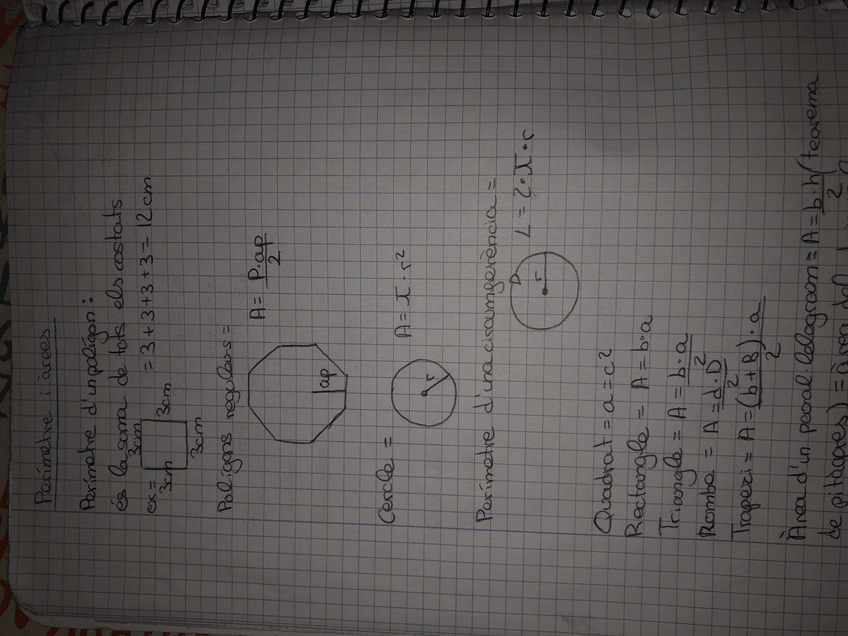 Perímetre i àrees
Perímetre d'un polígon:
és la suma de tots els costats
ex= 3cm 3cm 3cm 3cm = 3+3+3+3= 12cm
Polígons regulars=
ap
A= P·ap/2
Cercle =
r
A= π·r²
Perímetre d'una circumgerència=
D
r
L = 2·π·r
Quadrat = a=c²
Rectangle = A= b·a
Triangle = A= b·a/2
Rombe = A= d·D/2
Trapezi = A= (b+B)·a/2
Àrea d'un paral·lelogram= A= b·h/2 (teorema
de pitagores) = àrea del